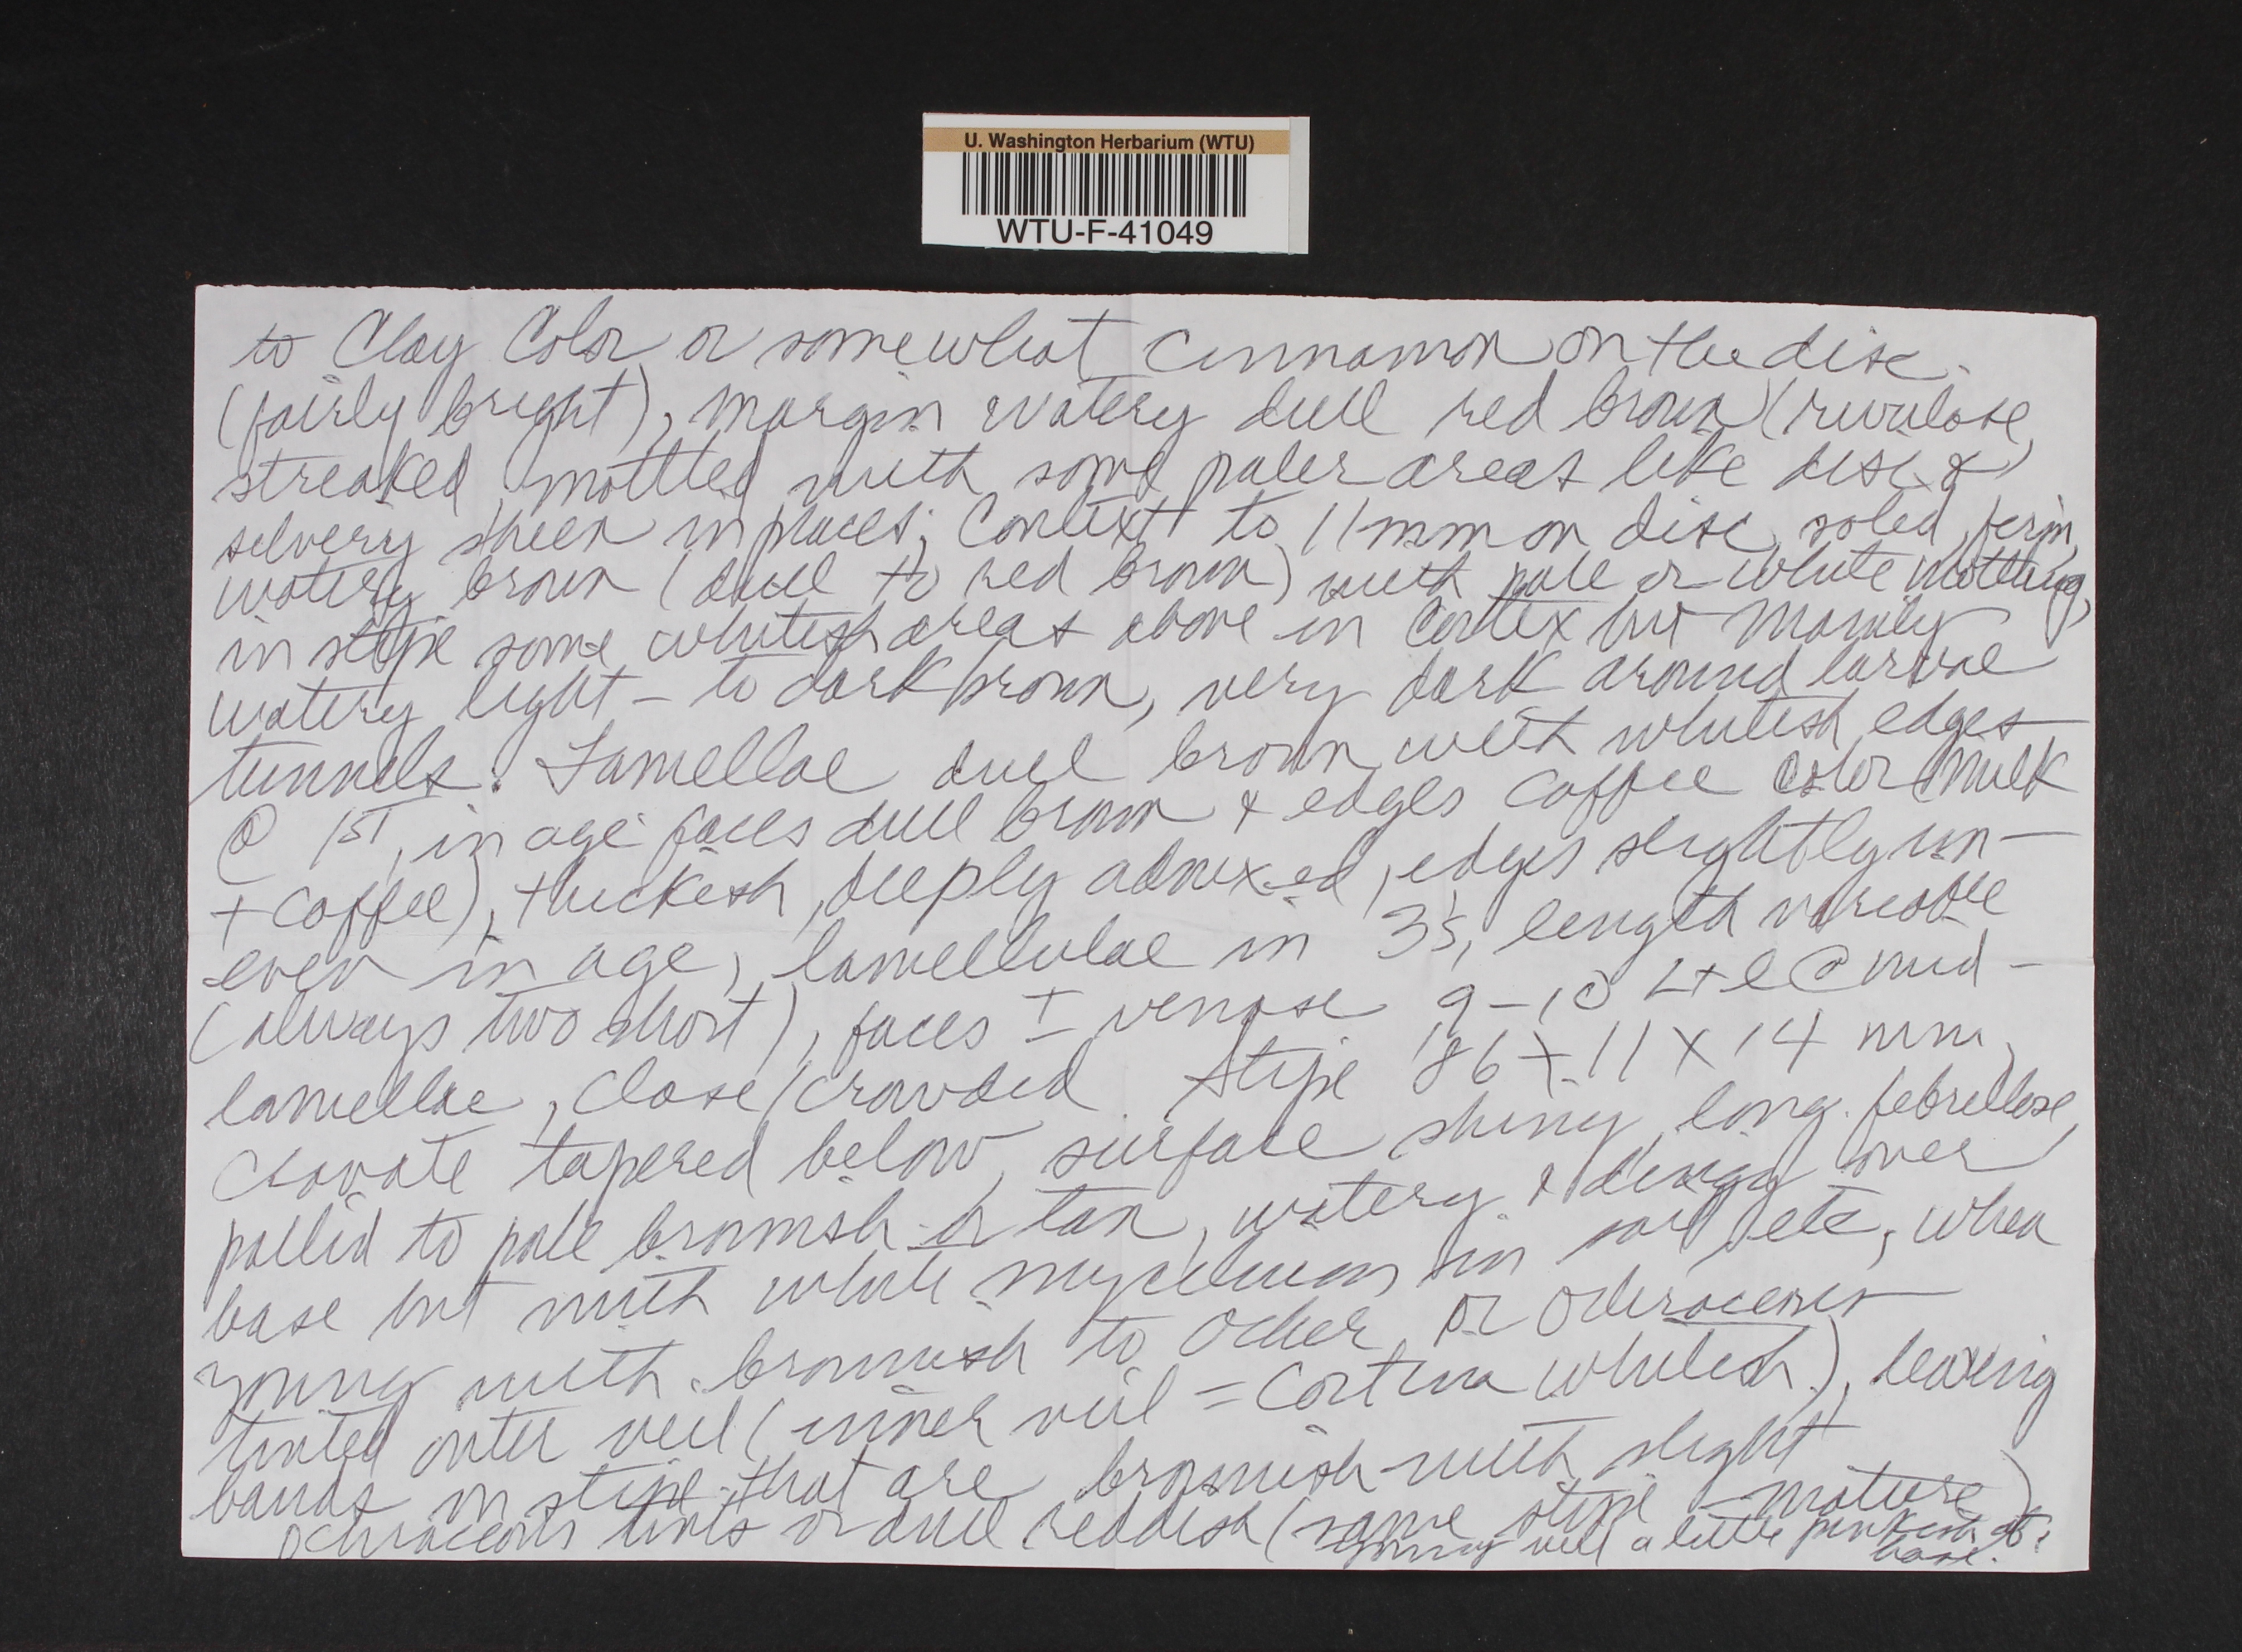 U. Washington Herbarium (WTU)
WTU-F-41049
to Clay Color or somewhat cinnamon on the disc
(fairly bright), margin watery dull red brown (rivulose,
streaked, mottled with some paler areas like disc &
silvery sheen in places; Context to 11 mm on disc, solid, firm,
watery brown (dull to red brown) with pale or white mottling,
in stipe some whitish areas above in cortex but mainly
watery light - to dark brown, very dark around larvae
tunnels. Lamellae dull brown with whitish edges
@ 1st, in age faces dull brown & edges coffee color (milk
+ coffee), thickish, deeply adnexed, edges slightly un-
even in age, lamellulae in 3's, length variable
(always two short), faces ± venose 9-10 L+l @ mid-
lamellae, close/crowded. Stipe 86 x 11 x 14 mm,
clavate tapered below, surface shiny, long. fibrillose,
pallid to pale brownish or tan, watery & dingy over
base but with white mycelium in soil etc, when
young with brownish to ocher or ochraceous
tinted outer veil (inner veil = cortina whitish), leaving
bands on stipe that are brownish with slight
ochraceous tints or dull reddish (same stipe - mature)
young veil a little pinkish at
base.